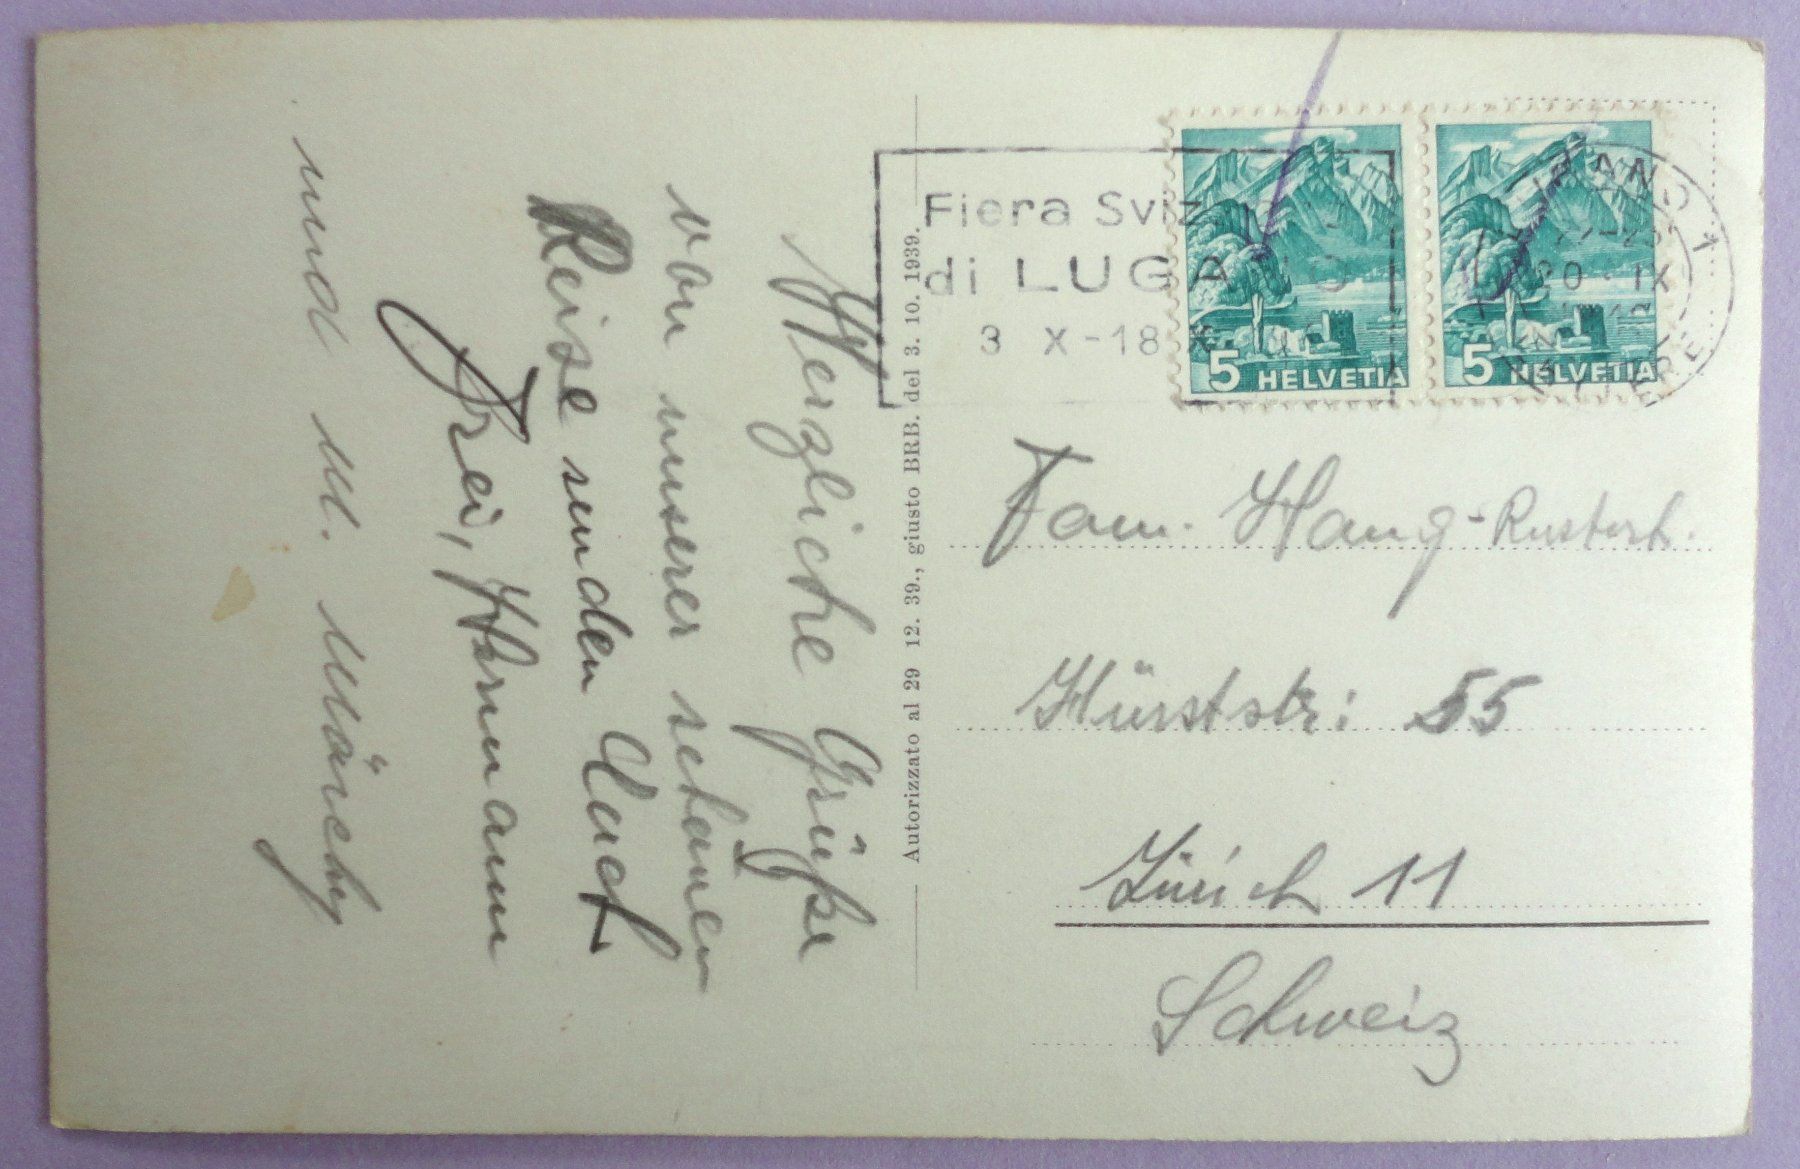 Herzliche Grüße
von unserer schönen
Reise senden Euch
Frei, Hermann
und M. Märchy
Autorizzato al 29 12. 39., giusto BRB. del 3. 10. 1939.
Fiera Sviz
di LUGANO
3 X-18 X
5 HELVETIA
5 HELVETIA
20 IX
Fam. Haug-
Hürststr: 55
Zürich 11
Schweiz